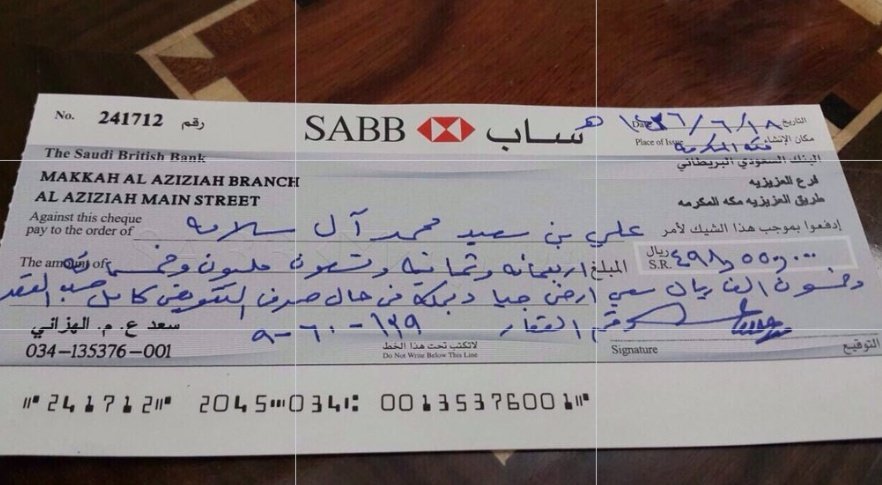 No. 241712 رقم
SABB ساب
التاريخ Date ١٤٣٦/٦/١٨ هـ
Place of Issue مكة المكرمة مكان الإنشاء
The Saudi British Bank
البنك السعودي البريطاني
MAKKAH AL AZIZIAH BRANCH
فرع العزيزيه
AL AZIZIAH MAIN STREET
طريق العزيزيه مكه المكرمه
Against this cheque
pay to the order of علي بن سعيد محمد آل سلامه إدفعوا بموجب هذا الشيك لأمر
The amount of المبلغ اربعمائه وثمانية وتسعون مليون وخمسمائة
ريال S.R. ٤٩٨,٥٥٠,٠٠٠
وخمسون الف ريال سعي ارض في حال صرف التعويض كامل حسب العقد
رقم العقار ١٢٩-٦٠-٩
سعد ع. م. الهزاني
034-135376-001
لاتكتب تحت هذا الخط
Do Not Write Below This Line
Signature التوقيع
⑈241712⑈ 2045⑉034⑆ 00135376001⑈